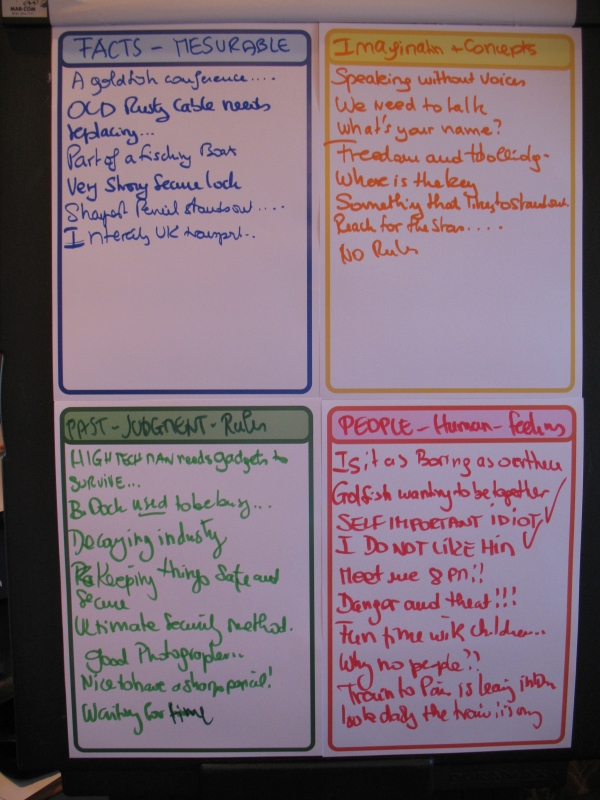 MAR-COM
FACTS - MESURABLE
A goldfish conference....
OLD Rusty Cable needs
replacing...
Part of a fisching Boat
Very Strong Secure lock
Shapest Pencil stands out....
Intercity UK transport..
Imagination + Concepts
Speaking without voices
We Need to talk
What's your name?
Freedom and
Where is the key
Something that likes to stand out
Reach for the Stars....
No Rules
PAST - JUDGMENT - Rules
HIGH TECH MAN needs gadgets to
SURVIVE...
Dock used to be busy...
Decaying industry
Keeping things Safe and
Secure
Ultimate Security method.
good Photographer..
Nice to have a sharp pencil!
Waiting for time
PEOPLE - Human - feelings
Is it as Boring as over there
Golfish wanting to be together
SELF IMPORTANT IDIOT ✓
I DO NOT LIKE HIM ✓
Meet me 8 PM!!
Danger and threat!!!
Fun time with children..
Why no people??
Train to is
the train is my